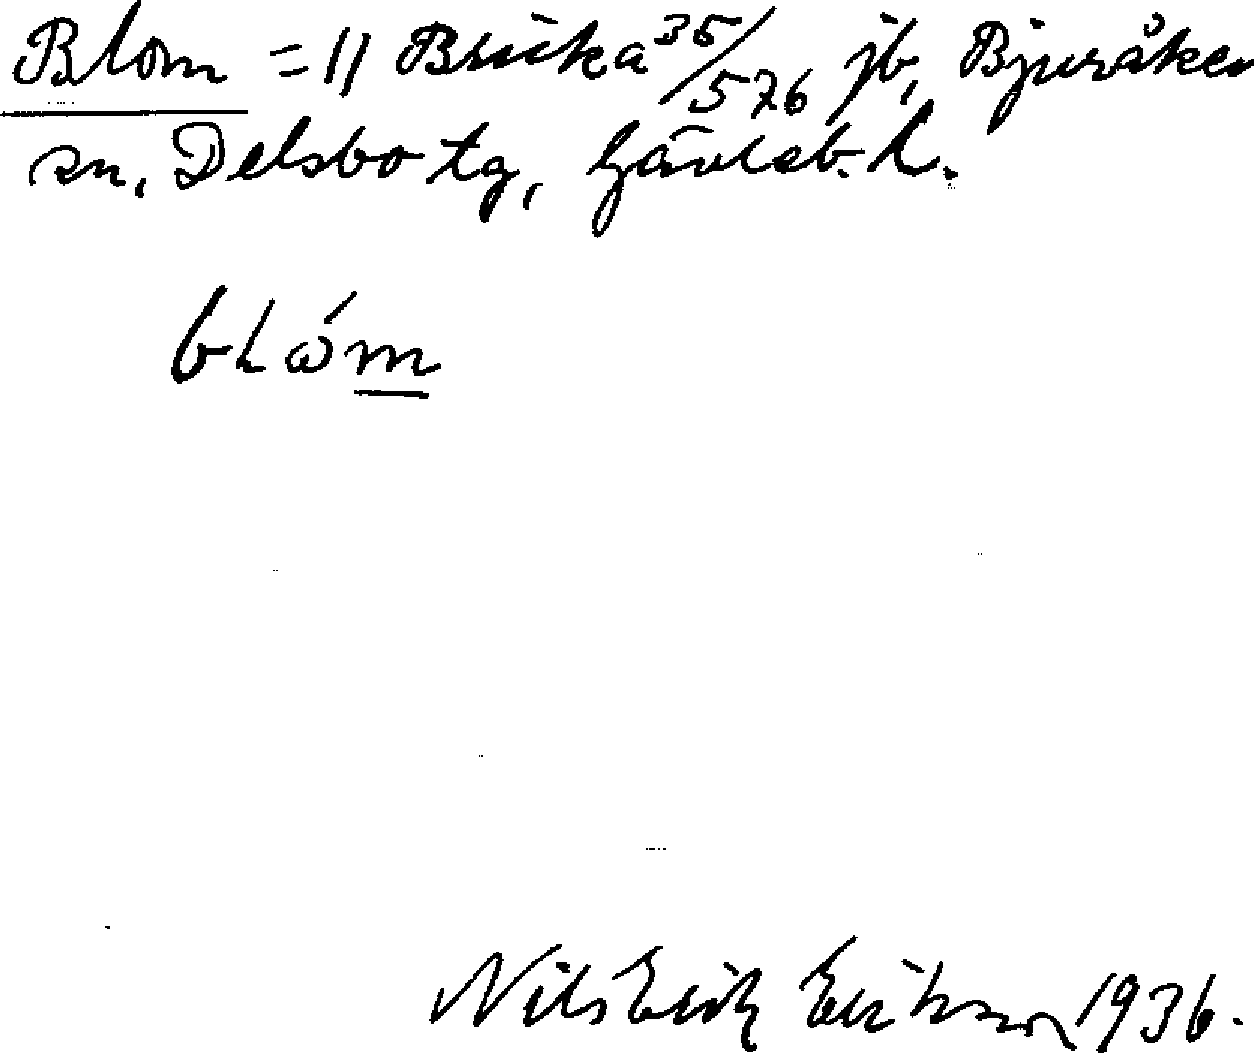 Blom = 11 Bricka 35/576 jb, Bjuråker
sn. Delsbo tg, Gävleb. l.
blóm
Nils Erik Eriksson 1936.